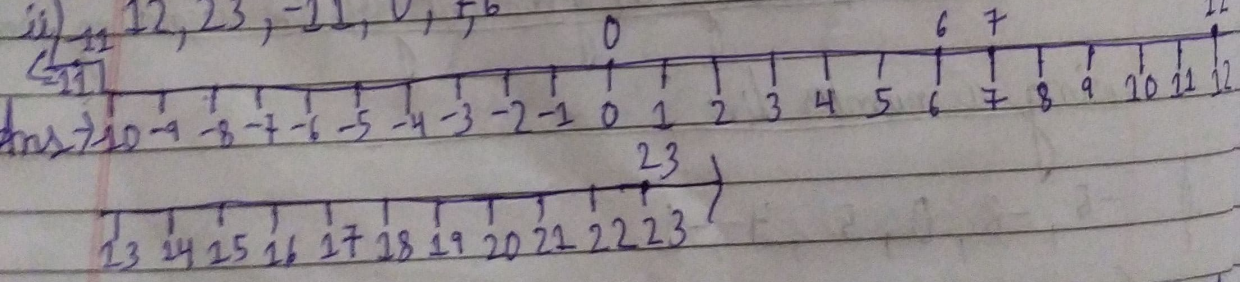 ii) 12, 23, -11, 0, 7, 6
-11 0 6 7 12
-11
Ans→ -10 -9 -8 -7 -6 -5 -4 -3 -2 -1 0 1 2 3 4 5 6 7 8 9 10 11 12
23
13 14 15 16 17 18 19 20 21 22 23